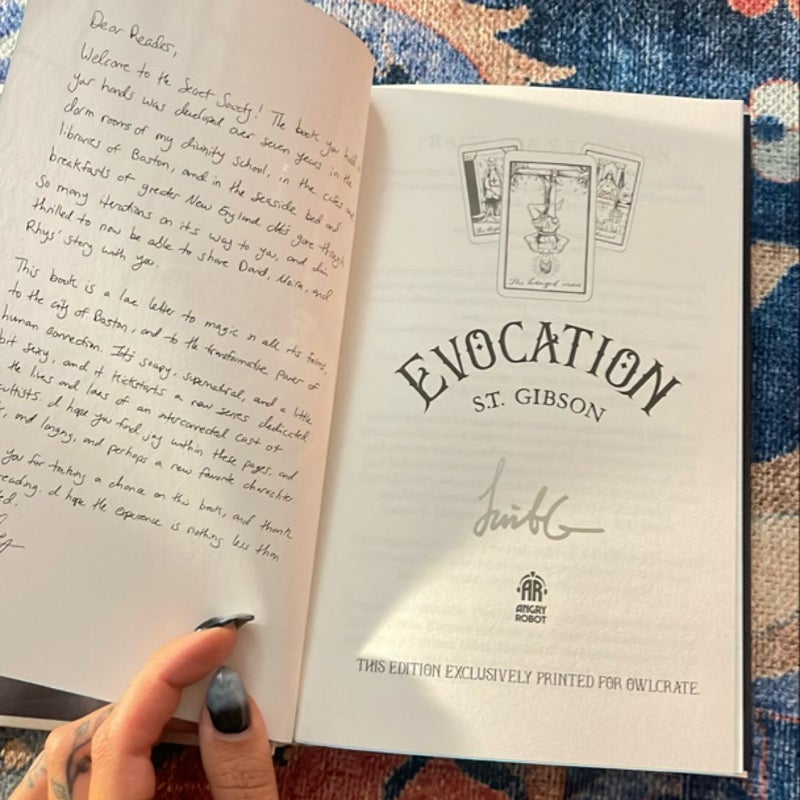 Dear Reader,
Welcome to the Secret Society! The book you hold in
your hands was developed over seven years in the
dorm rooms of my divinity school, in the cafes and
libraries of Boston, and in the seaside bed and
breakfasts of greater New England. It's gone through
so many iterations on its way to you, and I'm
thrilled to now be able to share David, Moira, and
Rhys' story with you.
This book is a love letter to magic in all its forms,
to the city of Boston, and to the transformative power of
human connection. It's soapy, supernatural, and a little
bit sexy, and it kickstarts a new series dedicated
the lives and loves of an interconnected cast of
I hope you find joy within these pages, and
and longing, and perhaps a new favorite character
you for taking a chance on this book, and thank
reading. I hope the experience is nothing less than
The Hanged man
EVOCATION
S.T. GIBSON
AR
ANGRY
ROBOT
THIS EDITION EXCLUSIVELY PRINTED FOR OWLCRATE.